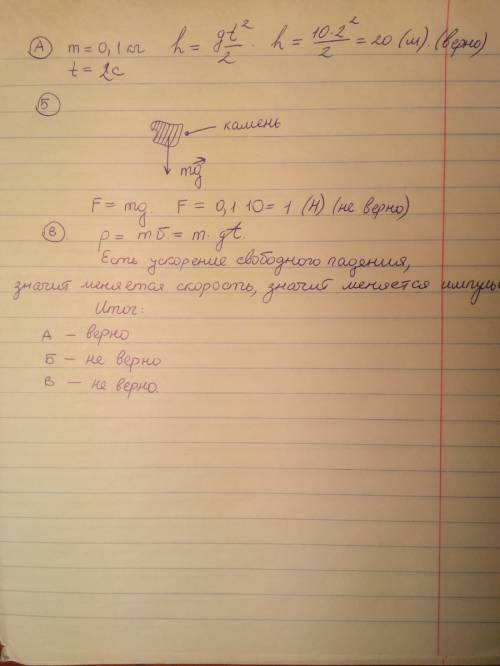 А m = 0,1 кг h = gt²/2. h = 10·2²/2 = 20 (м). (верно)
t = 2с
Б
камень
mg
F = mg. F = 0,1·10 = 1 (Н) (не верно)
В p = mυ = m·gt.
Есть ускорение свободного падения,
значит меняется скорость, значит меняется импуль
Итог:
А – верно
Б – не верно
В – не верно.